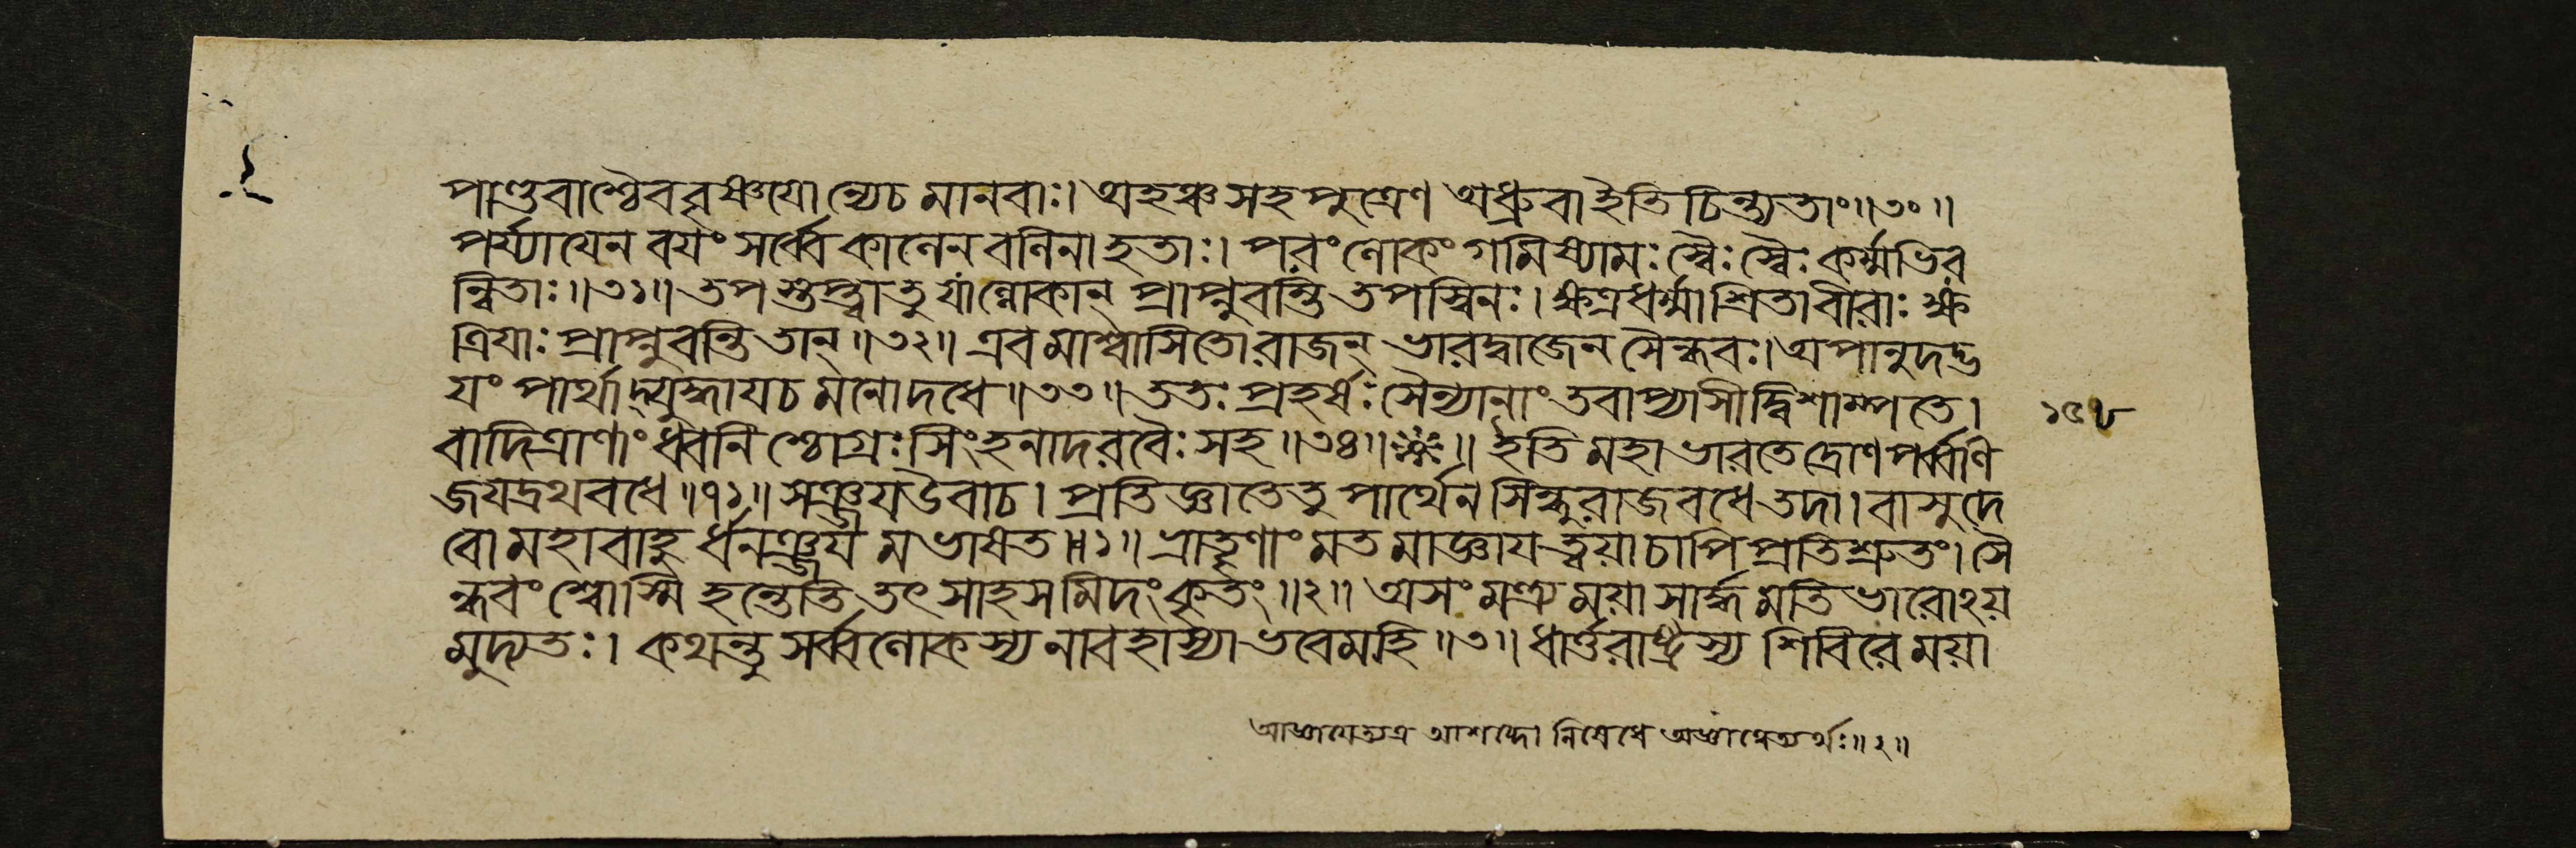 পাণ্ডবাশ্চৈব বৃষ্ণয়োন্যেচ মানবাঃ। অহঞ্চ সহ পুত্রেণ অধ্রুবা ইতি চিন্ত্যতাং॥৩০॥
পর্য্যায়েন বয়ং সর্ব্বে কালেন বলিনা হতাঃ। পরং লোকং গমিষ্যামঃ স্বৈঃ স্বৈঃ কর্ম্মভির
ন্বিতাঃ॥৩১॥ তপস্তপ্ত্বা তু যাঁল্লোকান্ প্রাপ্নুবন্তি তপস্বিনঃ। ক্ষত্রধর্ম্মাশ্রিতা বীরাঃ ক্ষ
ত্রিয়াঃ প্রাপ্নুবন্তি তান্॥৩২॥ এবমাশ্বাসিতো রাজন্ ভারদ্বাজেন সৈন্ধবঃ। অপানুদদ্ভ
য়ং পার্থাদ্যুদ্ধায় চ মনোদধে॥৩৩॥ ততঃ প্রহর্ষঃ সৈন্যানাং তবাপ্যাসীদ্বিশাম্পতে।
১৫৮
বাদিত্রাণাং ধ্বনিশ্চোগ্রঃ সিংহনাদরবৈঃ সহ॥৩৪॥ ॥ ইতি মহাভারতে দ্রোণপর্ব্বণি
জয়দ্রথবধে॥৭১॥ সঞ্জয় উবাচ। প্রতিজ্ঞাতে তু পার্থেন সিন্ধুরাজবধে তদা। বাসুদে
বো মহাবাহুর্ধনঞ্জয়মভাষত॥১॥ ভ্রাতৄণাং মতমাজ্ঞায় ত্বয়া চাপি প্রতিশ্রুতং। সৈ
ন্ধবং শ্বোস্মি হন্তেতি তৎ সাহসমিদং কৃতং॥২॥ অসংমন্ত্র্য ময়া সার্দ্ধমতিভারোঽয়
মুদ্যতঃ। কথন্তু সর্ব্বলোকস্য নাবহাস্যা ভবেমহি॥৩॥ ধার্ত্তরাষ্ট্রস্য শিবিরে ময়া
আজ্ঞায়েত্যত্র আশব্দো নিষেধে অজ্ঞাত্বেত্যর্থঃ॥২॥